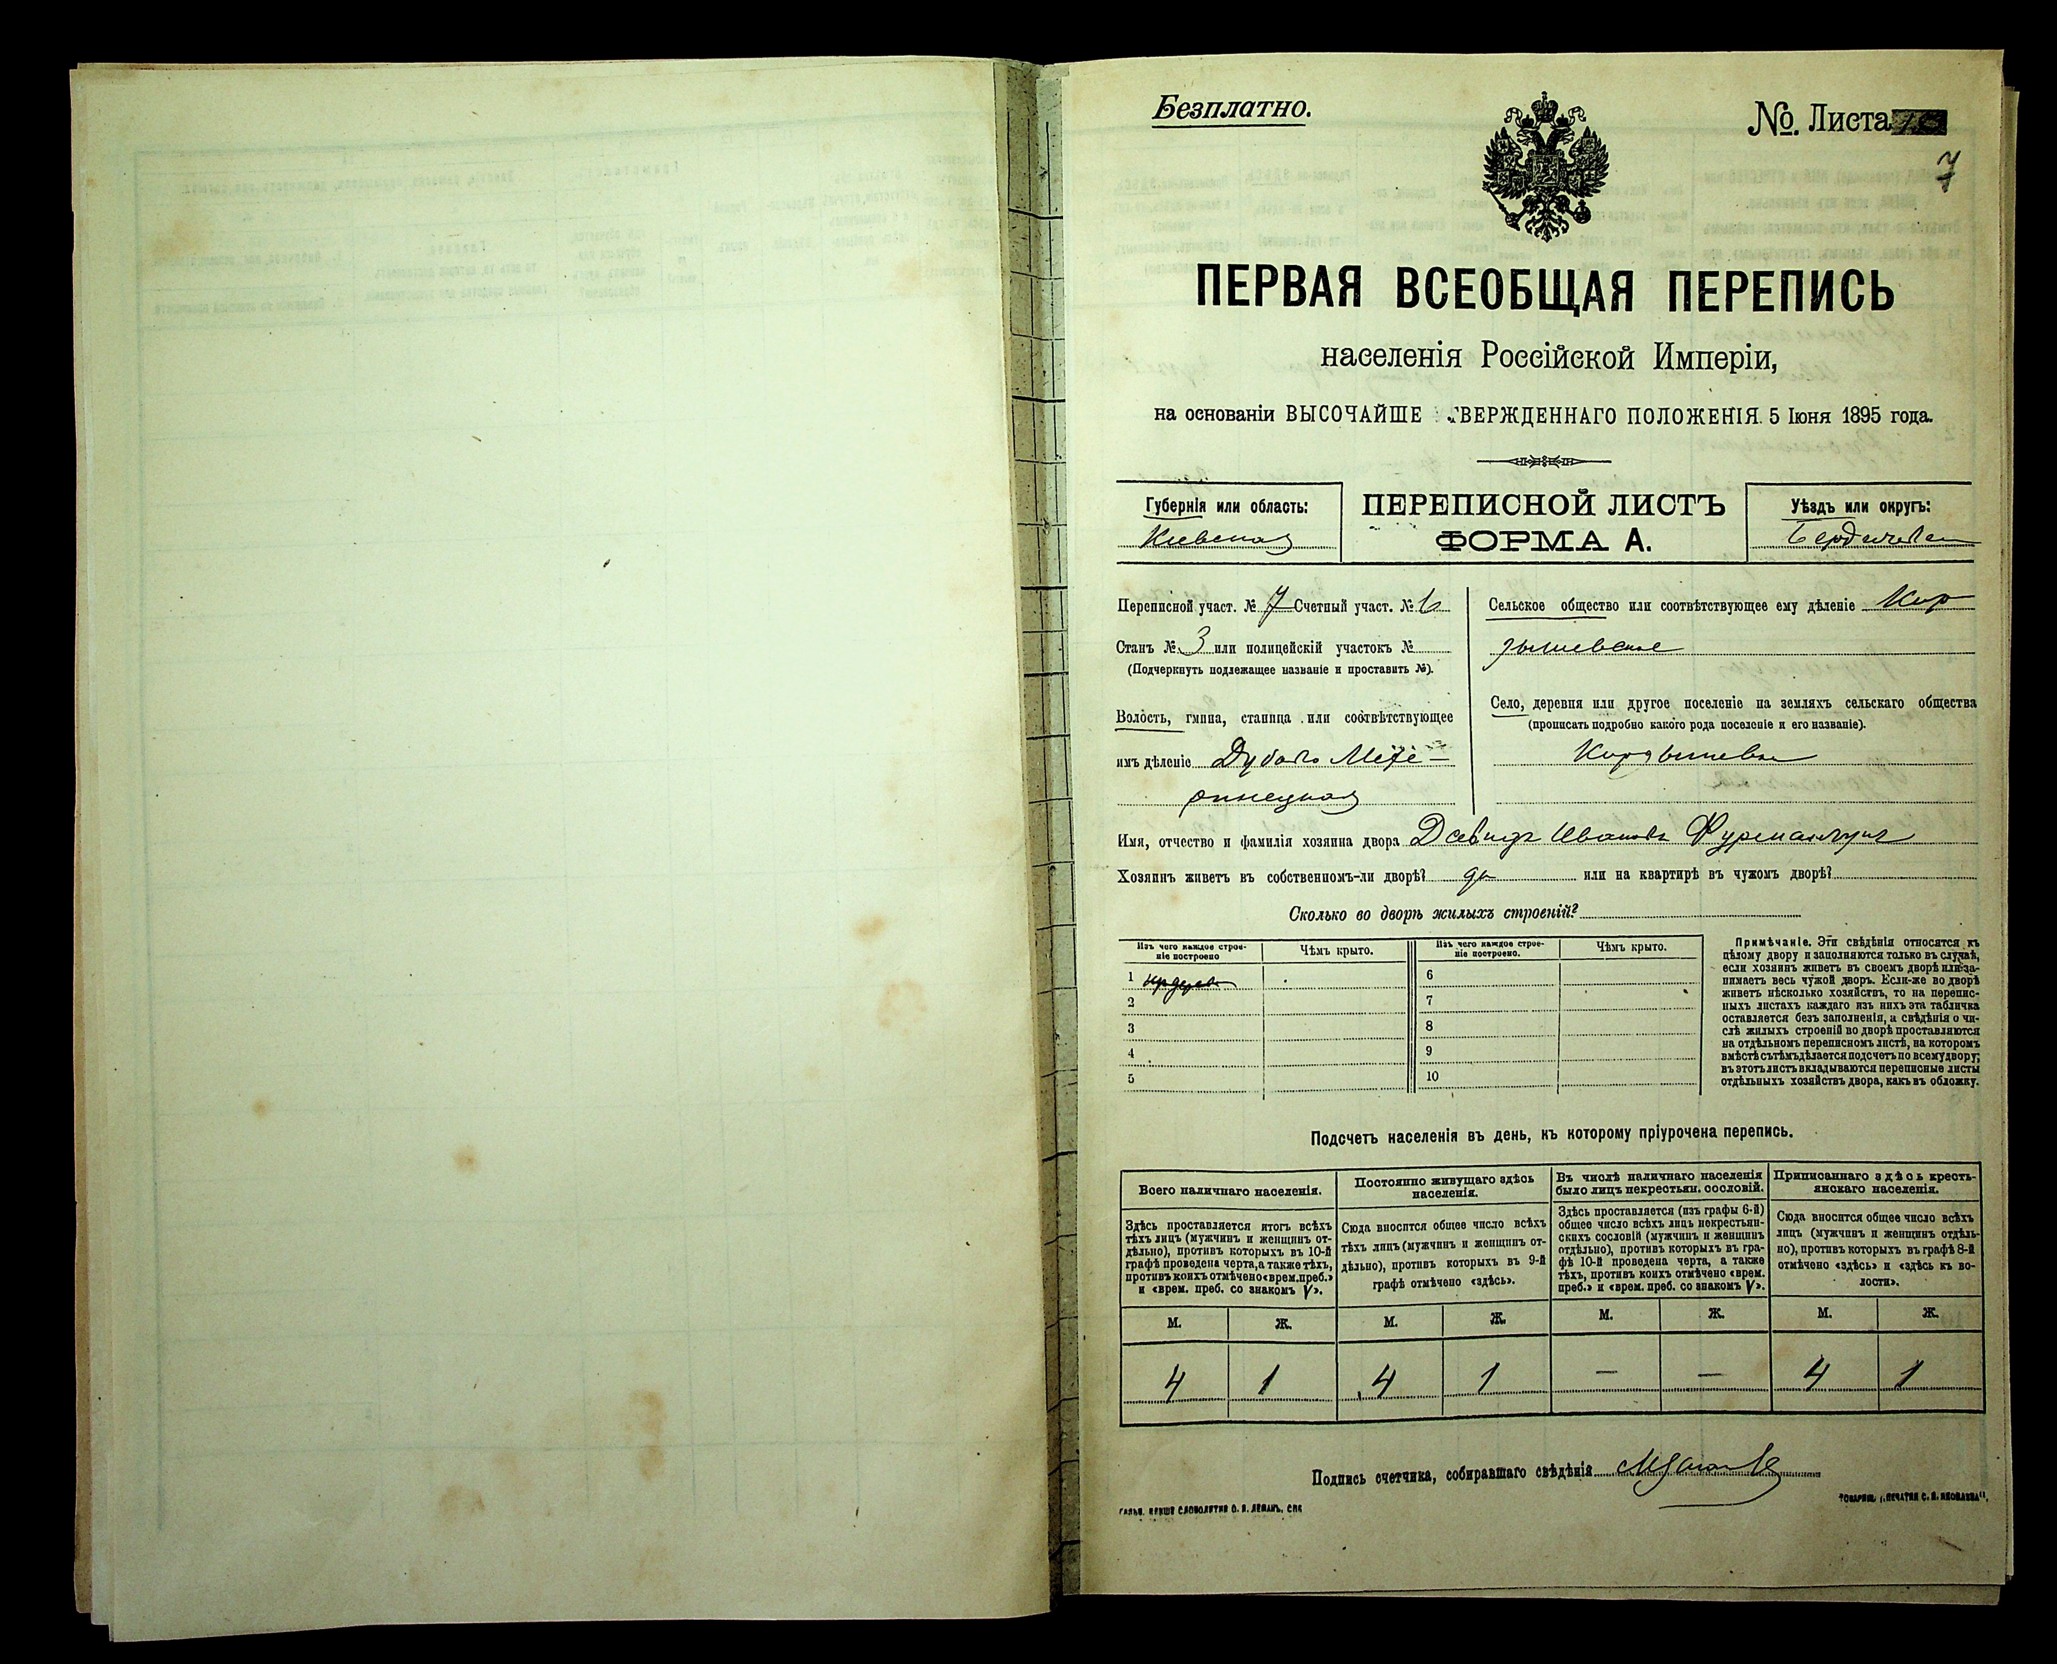 Безплатно.
№. Листа
7
ПЕРВАЯ ВСЕОБЩАЯ ПЕРЕПИСЬ
населенія Россійской Имперіи,
на основаніи ВЫСОЧАЙШЕ ТВЕРЖДЕННАГО ПОЛОЖЕНІЯ 5 Іюня 1895 года.
Губернія или область:
Кіевская
ПЕРЕПИСНОЙ ЛИСТЪ
ФОРМА А.
Уѣздъ или округъ:
Бердичевск
Переписной участ. № 7 Счетный участ. № 6
Станъ № 3 или полицейскій участокъ №
(Подчеркнуть подлежащее названіе и проставить №).
Волость, гмина, станица или соотвѣтствующее
имъ дѣленіе Дубово Меже-
ринецкая
Сельское общество или соотвѣтствующее ему дѣленіе Кор
дышевское
Село, деревня или другое поселеніе на земляхъ сельскаго общества
(прописать подробно какого рода поселеніе и его названіе).
Кордышевка
Имя, отчество и фамилія хозяина двора Давидъ Ивановъ Фурманчукъ
Хозяинъ живетъ въ собственномъ-ли дворѣ? да или на квартирѣ въ чужомъ дворѣ?
Сколько во дворѣ жилыхъ строеній?
Изъ чего каждое строе-
ніе построено
Чѣмъ крыто.
Изъ чего каждое строе-
ніе построено.
Чѣмъ крыто.
1
2
3
4
5
6
7
8
9
10
Примѣчаніе. Эти свѣдѣнія относятся къ
цѣлому двору и заполняются только въ случаѣ,
если хозяинъ живетъ въ своемъ дворѣ или за-
нимаетъ весь чужой дворъ. Если-же во дворѣ
живетъ нѣсколько хозяйствъ, то на перепис-
ныхъ листахъ каждаго изъ нихъ эта табличка
оставляется безъ заполненія, а свѣдѣнія о чи-
слѣ жилыхъ строеній во дворѣ проставляются
на отдѣльномъ переписномъ листѣ, на которомъ
вмѣстѣ съ тѣмъ дѣлается подсчетъ по всему двору;
въ этотъ листъ вкладываются переписные листы
отдѣльныхъ хозяйствъ двора, какъ въ обложку.
Подсчетъ населенія въ день, къ которому пріурочена перепись.
Всего наличнаго населенія.
Здѣсь проставляется итогъ всѣхъ
тѣхъ лицъ (мужчинъ и женщинъ от-
дѣльно), противъ которыхъ въ 10-й
графѣ проведена черта, а также тѣхъ,
противъ коихъ отмѣчено «врем. преб.»
и «врем. преб. со знакомъ V».
Постоянно живущаго здѣсь
населенія.
Сюда вносится общее число всѣхъ
тѣхъ лицъ (мужчинъ и женщинъ от-
дѣльно), противъ которыхъ въ 9-й
графѣ отмѣчено «здѣсь».
Въ числѣ наличнаго населенія
было лицъ некрестьян. сословій.
Здѣсь проставляется (изъ графы 6-й)
общее число всѣхъ лицъ некрестьян-
скихъ сословій (мужчинъ и женщинъ
отдѣльно), противъ которыхъ въ гра-
фѣ 10-й проведена черта, а также
тѣхъ, противъ коихъ отмѣчено «врем.
преб.» и «врем. преб. со знакомъ V».
Приписаннаго здѣсь кресть-
янскаго населенія.
Сюда вносится общее число всѣхъ
лицъ (мужчинъ и женщинъ отдѣль-
но), противъ которыхъ въ графѣ 8-й
отмѣчено «здѣсь» и «здѣсь къ во-
лости».
М. Ж. М. Ж. М. Ж. М. Ж.
4 1 4 1 — — 4 1
Подпись счетчика, собиравшаго свѣдѣнія
СЛОВОЛИТНИ О. И. ЛЕМАНЪ, СПБ
ТОВАРИЩ. „ПЕЧАТНЯ С. П. ЯКОВЛЕВА“.